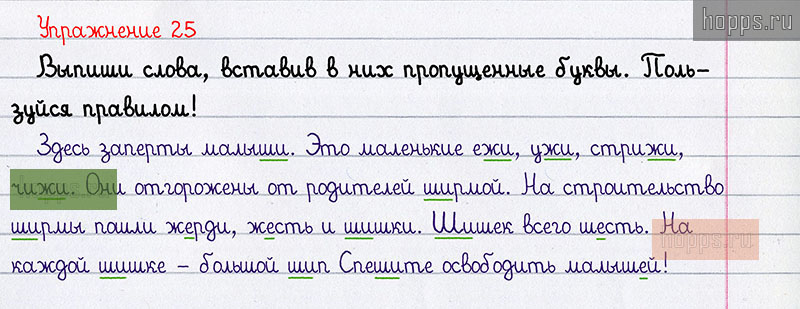 hopps.ru
Упражнение 25
Выпиши слова, вставив в них пропущенные буквы. Поль-
зуйся правилом!
Здесь заперты малыши. Это маленькие ежи, ужи, стрижи,
чижи. Они отгорожены от родителей ширмой. На строительство
ширмы пошли жерди, жесть и шишки. Шишек всего шесть. На
hopps.ru
каждой шишке – большой шип Спешите освободить малышей!